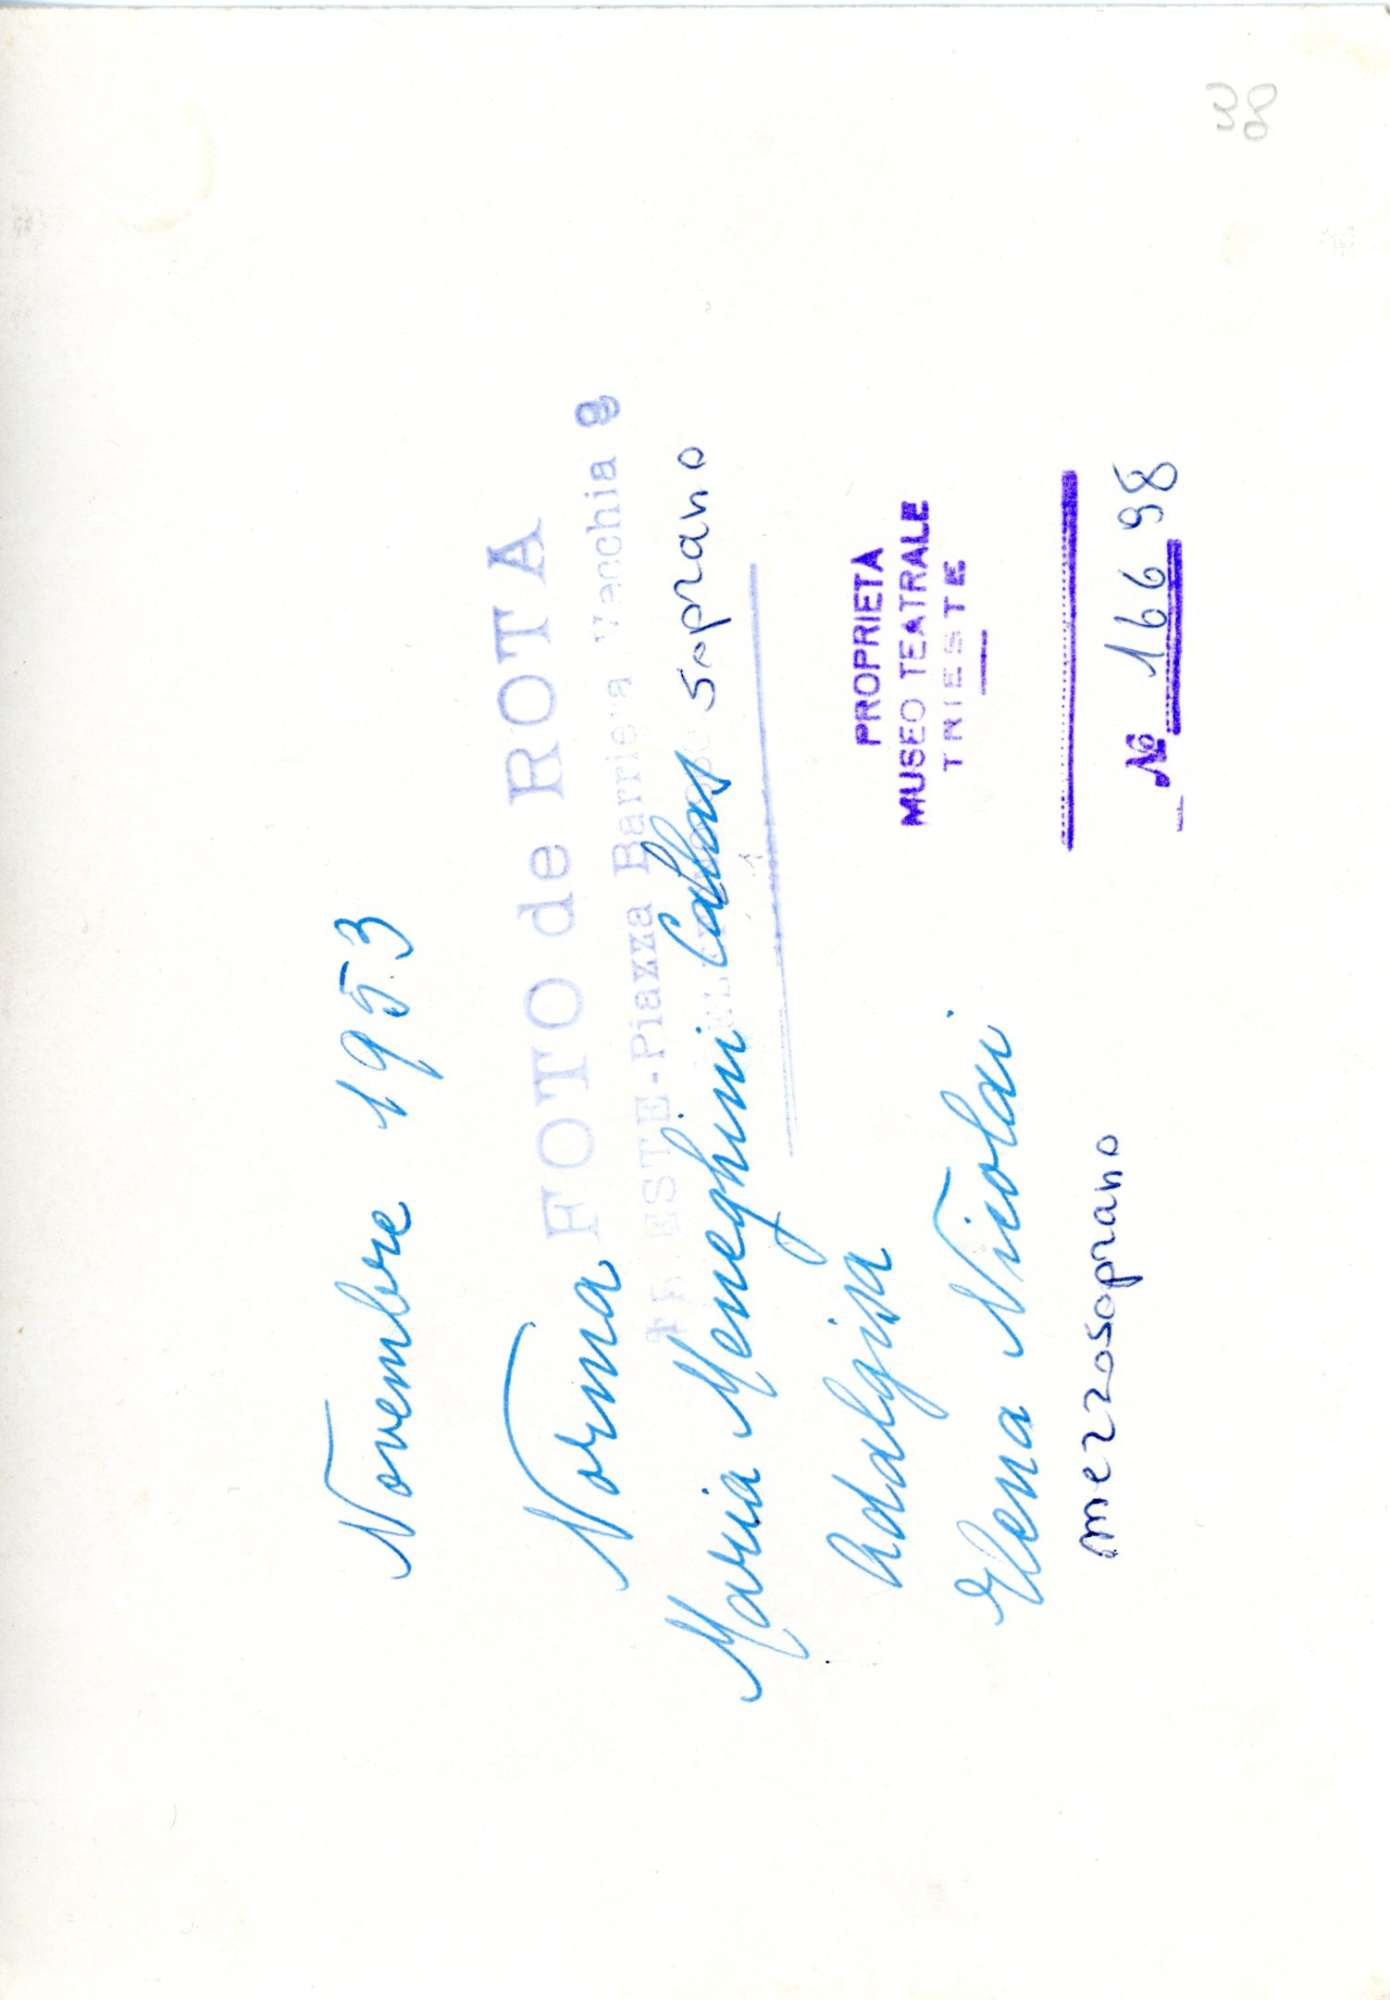 Novembre 1953
FOTO de ROTA
TRIESTE-Piazza Barriera Vecchia 8
Norma
Maria Meneghini Callas soprano
Adalgisa
Elena Nicolai
mezzosoprano
PROPRIETA
MUSEO TEATRALE
TRIESTE
№ 16698
38